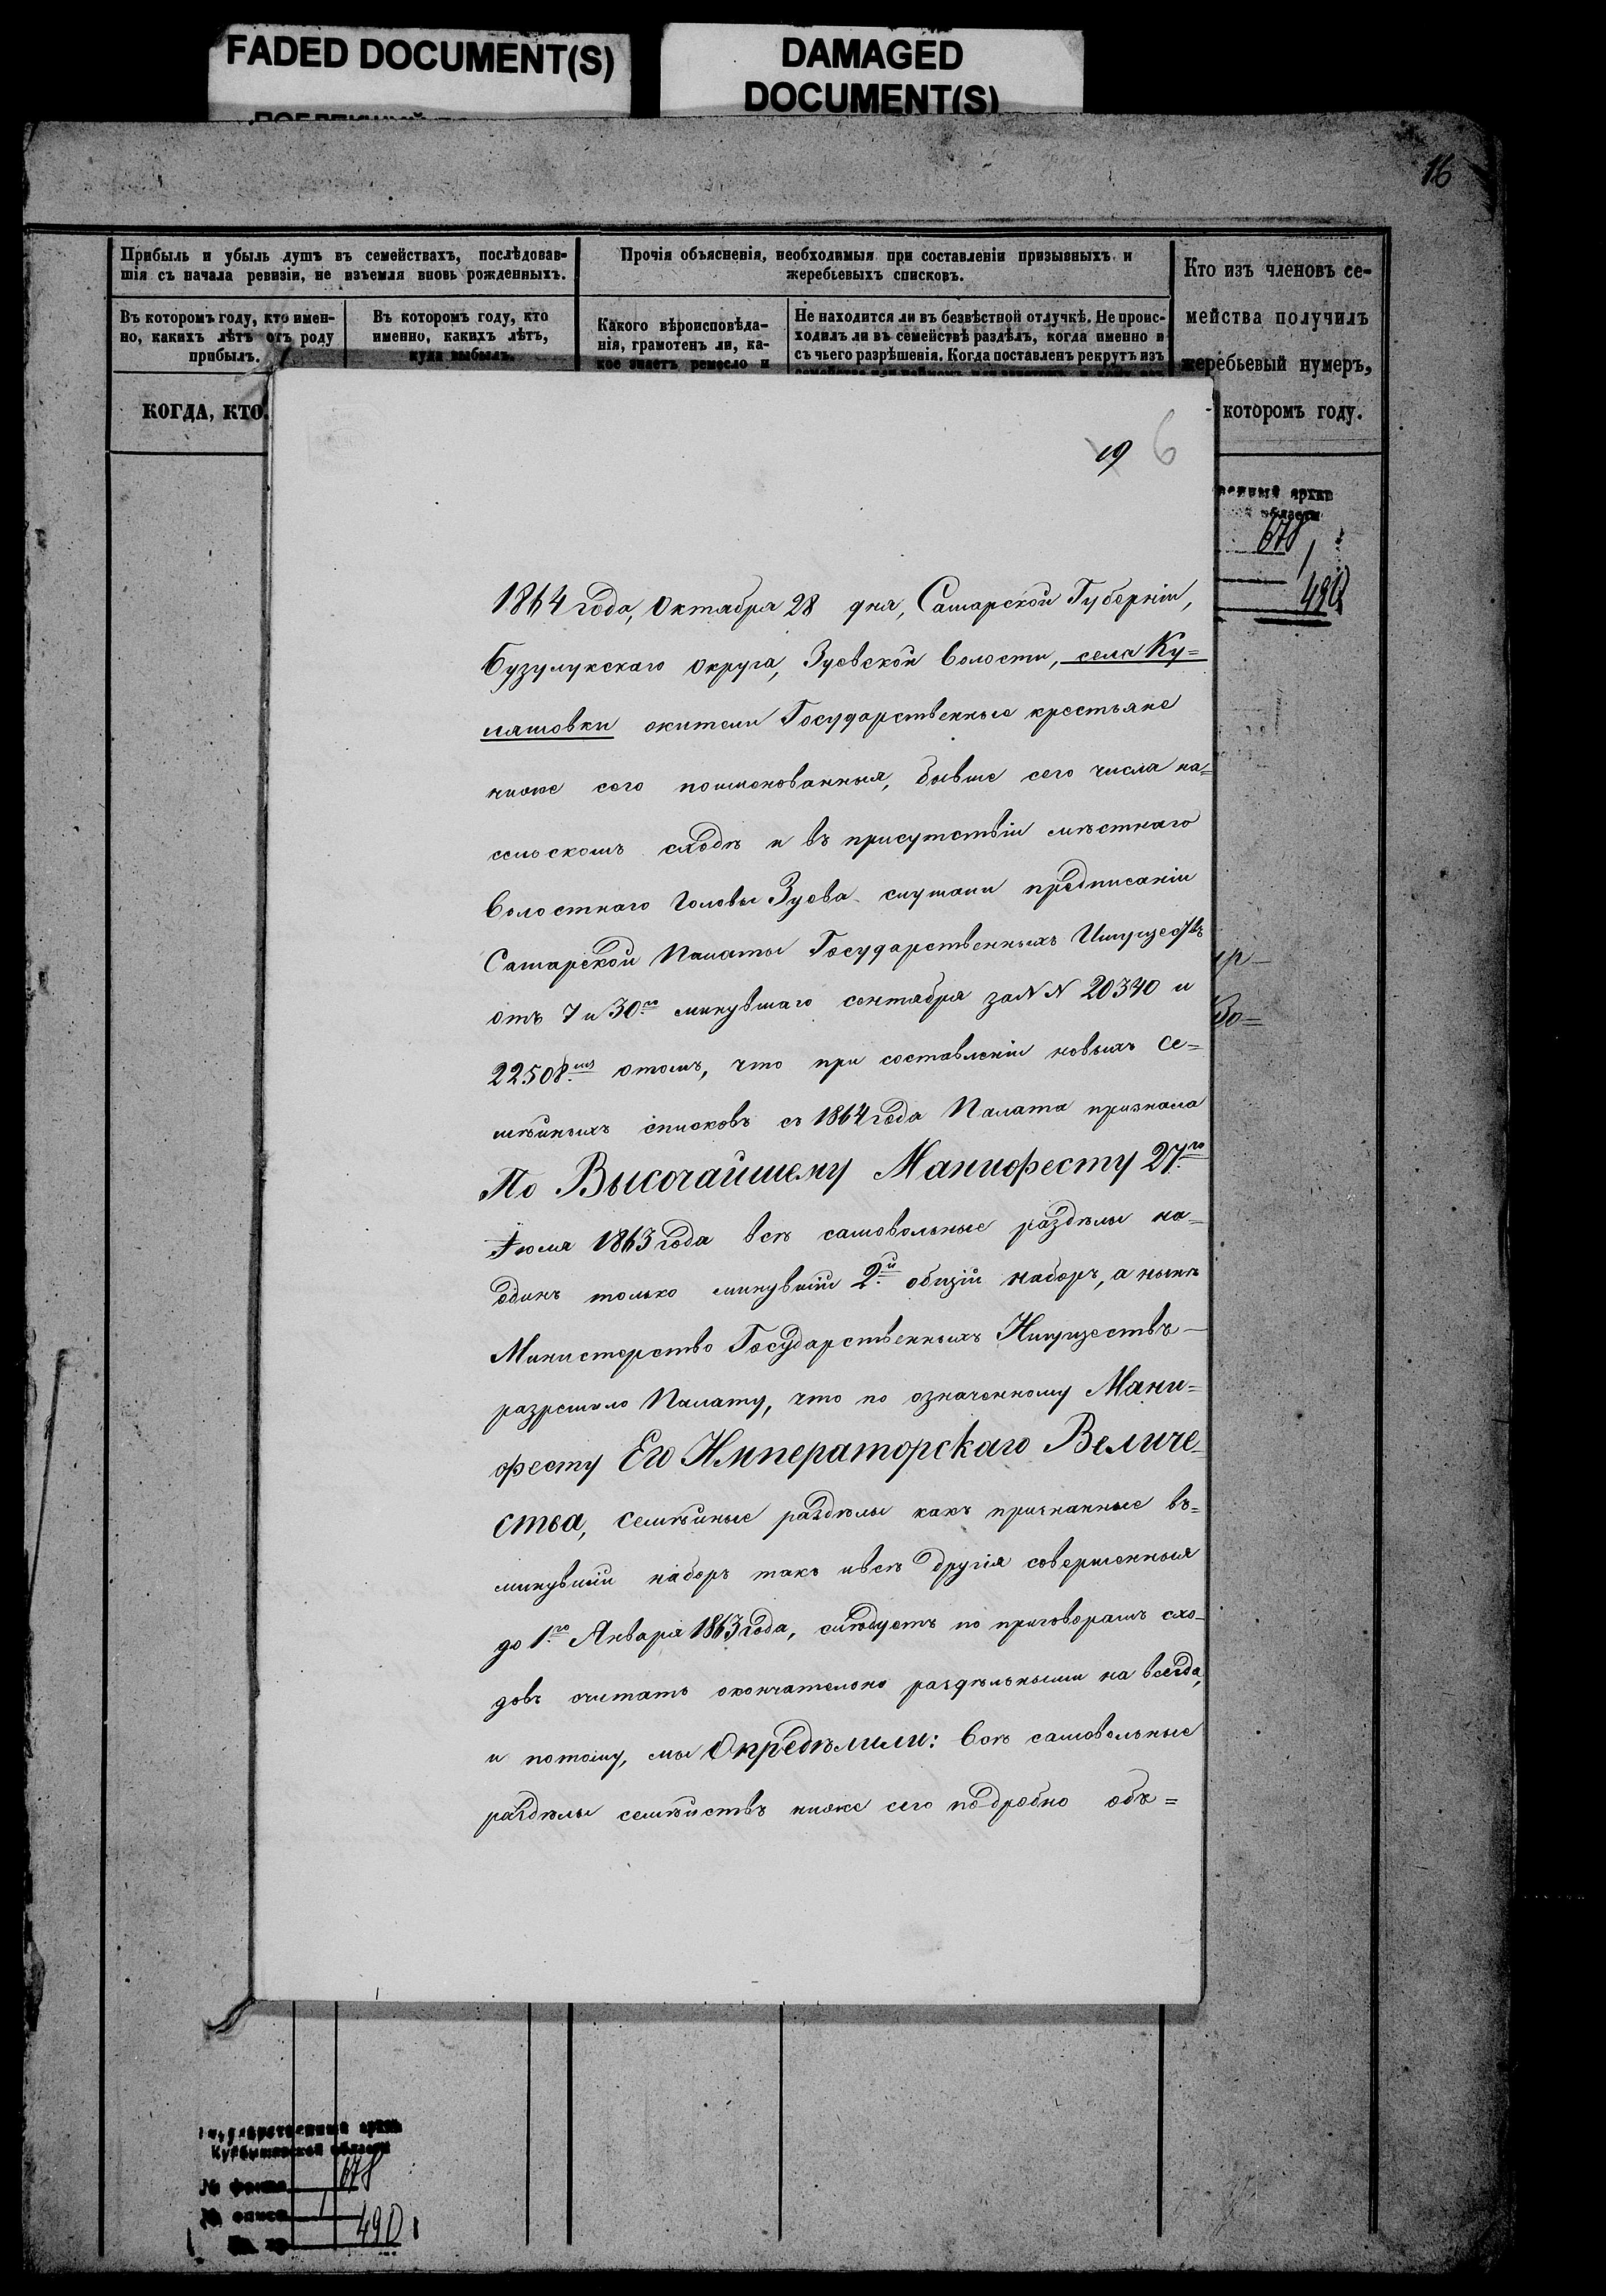 FADED DOCUMENT(S)
DAMAGED
DOCUMENT(S)
16
Прибыль и убыль душъ въ семействахъ, послѣдовав-
шія съ начала ревизіи, не изъемля вновь рожденныхъ.
Прочія объясненія, необходимыя при составленіи призывныхъ и
жеребьевыхъ списковъ.
Кто изъ членовъ се-
мейства получилъ
жеребьевый нумеръ,
котоpомъ году.
Въ которомъ году, кто имен-
но, какихъ лѣтъ отъ роду
прибылъ.
Въ которомъ году, кто
именно, какихъ лѣтъ,
куда выбылъ.
Какого вѣроисповѣда-
нія, грамотенъ ли, ка-
кое знаетъ ремесло и
Не находится ли въ безвѣстной отлучкѣ. Не проис-
ходилъ ли въ семействѣ раздѣлъ, когда именно и
съ чьего разрѣшенія. Когда поставленъ рекрутъ изъ
КОГДА, КТО.
19 6
архив
области
678
1
490
1864 года, Октября 28 дня, Самарской Губерніи,
Бузулукскаго Округа, Зуевской Волости, села Ку=
ляшовки жители Государственные крестьяне
ниже сего поименованныя, бывше сего числа на=
сельскомъ сходѣ и въ присутствіи мѣстнаго
Волостнаго Головы Зуева слушали предписаніи
Самарской Палаты Государственныхъ Имуществъ
отъ 7 и 30го минувшаго сентября за N N 20340 и
22508мъ отомъ, что при составленіи новыхъ Се=
мѣйныхъ списковъ съ 1864 года Палата признала
По Высочайшему Манифесту 27го
Іюля 1863 года всѣ самовольные раздѣлы на=
одинъ только минувшій 2й общій наборъ, а нынѣ
Министерство Государственныхъ Имуществъ —
разрешило Палату, что по означенному Мани=
фесту Его Императорскаго Величе=
ства, семѣйные раздѣлы какъ признанные въ=
минувшій наборъ такъ ивсѣ другія совершенныя
до 1го Января 1863 года, слѣдуетъ по приговорамъ схо=
довъ считать окончательно раздѣльными на всегда,
и потому, мы Опредѣлили: Всѣ самовольные
раздѣлы семѣйствъ ниже сего подробно объ=
Государственный архив
Куйбышевской области
№ фонда 678
№ описи 1
490